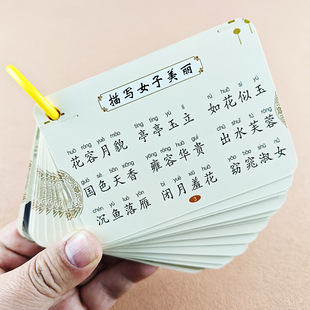 描写女子美丽
huā róng yuè mào tíng tíng yù lì rú huā sì yù
花容月貌 亭亭玉立 如花似玉
guó sè tiān xiāng yōng róng huá guì chū shuǐ fú róng
国色天香 雍容华贵 出水芙蓉
chén yú luò yàn bì yuè xiū huā yǎo tiǎo shū nǚ
沉鱼落雁 闭月羞花 窈窕淑女
3